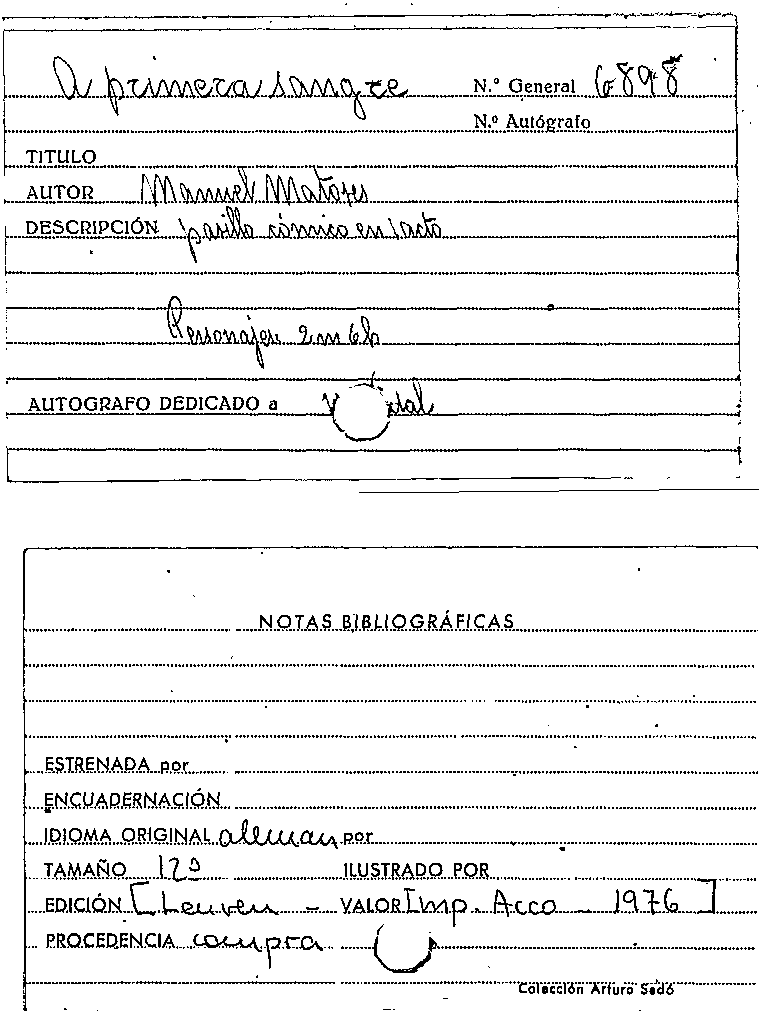 A primera sangre N.º General 6898
N.º Autógrafo
TITULO
AUTOR Manuel Matoses
DESCRIPCIÓN pasillo cómico en 1 acto
Personajes 2m 6h
AUTOGRAFO DEDICADO a
NOTAS BIBLIOGRÁFICAS
ESTRENADA por
ENCUADERNACIÓN
IDIOMA ORIGINAL aleman por
TAMAÑO 12º ILUSTRADO POR
EDICIÓN [Leuven - VALOR Imp. Acco - 1976]
PROCEDENCIA compra
Colección Arturo Sedó